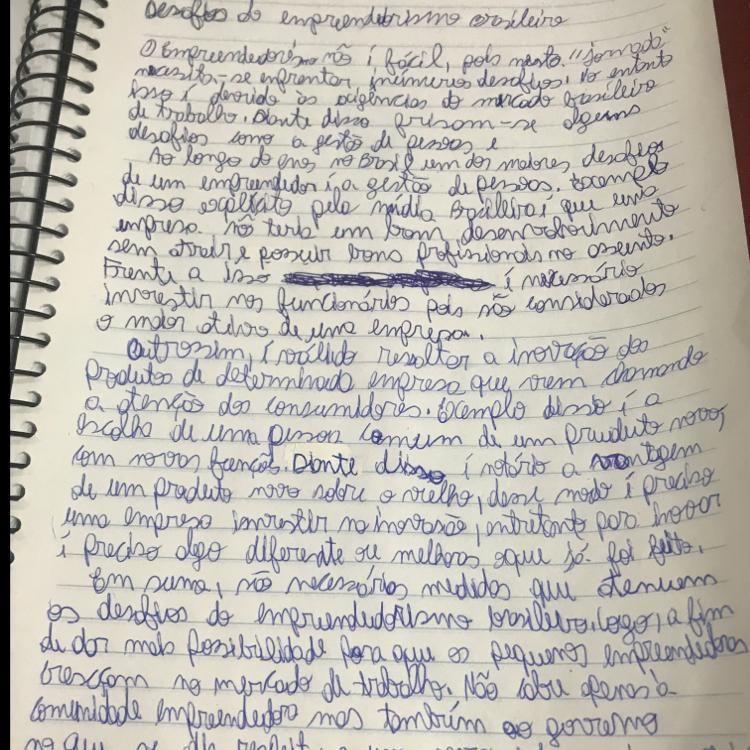 Desafios do empreendedorismo brasileiro
O Empreendedorismo não é fácil, pois nesta "jornada"
necesita-se enfrentar inúmeros desafios. No entanto
isso é devido às exigências do mercado brasileiro
de trabalho. Diante disso frisam-se alguns
desafios como a gestão de pessoas e
Ao longo do anos no Brasil um dos maiores desafios
de um empreendedor é a gestão de pessoas. Exemplo
disso explicito pela mídia Brasileira é que uma
empresa não teria um bom desenvolvimento
sem atrair e possuir bons profissionais no assunto.
Frente a isso é necessário
investir nos funcionários pois são considerados
o maior ativo de uma empresa.
Outrossim, é válido resaltar a inovação dos
produtos de determinada empresa que vem chamando
a atenção dos consumidores. Exemplo disso é a
escolha de uma pessoa comum de um produto novo,
com novas funções. Diante disso é notório a vantagem
de um produto novo sobre o velho, desse modo é preciso
uma empresa investir na inovasão, entretanto para inovar
é preciso algo diferente ou melhorar oque já foi feito.
Em suma, são necessários medidas que atenuem
os desafios do empreendedorismo brasileiro. Logo, a fim
de dar mais possibilidade para que os pequenos empreendedores
cresçam no mercado de trabalho. Não cabe apenas à
comunidade empreendedora mas também ao governo
no que se diz respeito